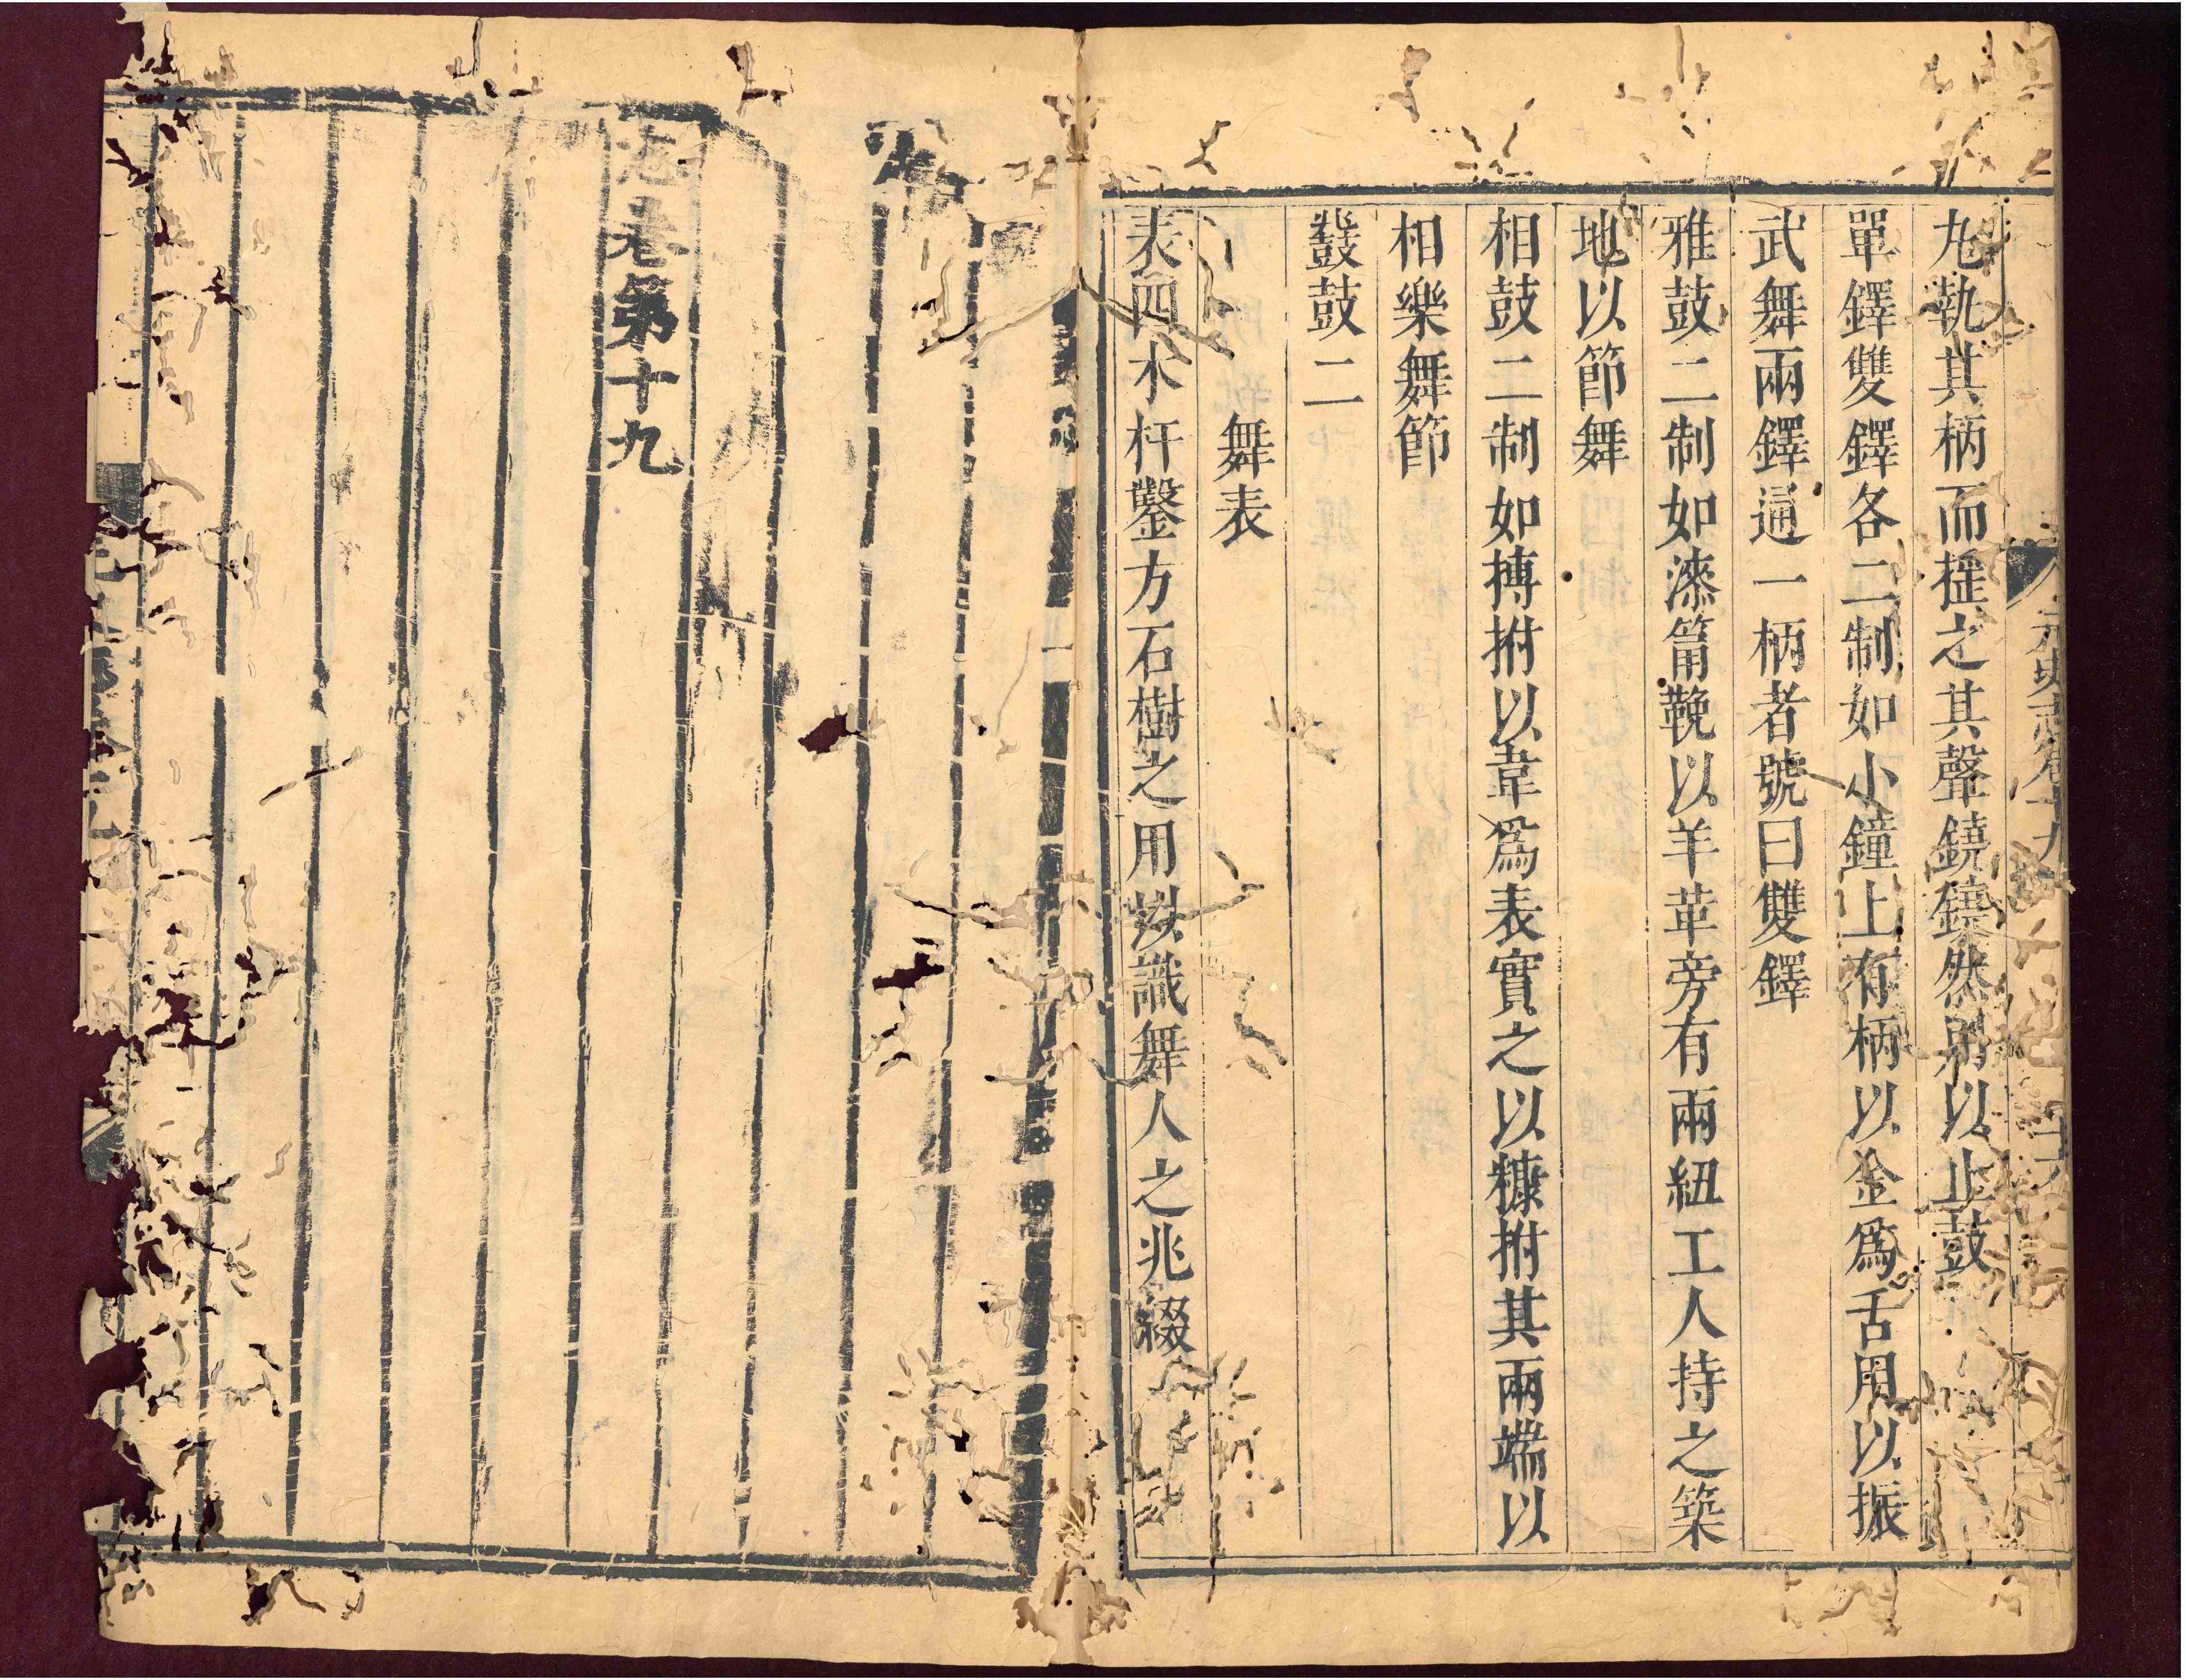 元史志卷十九
九執其柄而摇之其聲鐃鐃然用以止鼓
單鐸雙鐸各二制如小鐘上有柄以金爲舌用以振
武舞兩鐸通一柄者號曰雙鐸
雅鼓二制如漆筩鞔以羊革旁有兩紐工人持之築
地以節舞
相鼓二制如搏拊以韋爲表實之以糠拊其兩端以
相樂舞節
鼗鼓二
舞表
表四木杆鑿方石樹之用以識舞人之兆綴
志卷第十九